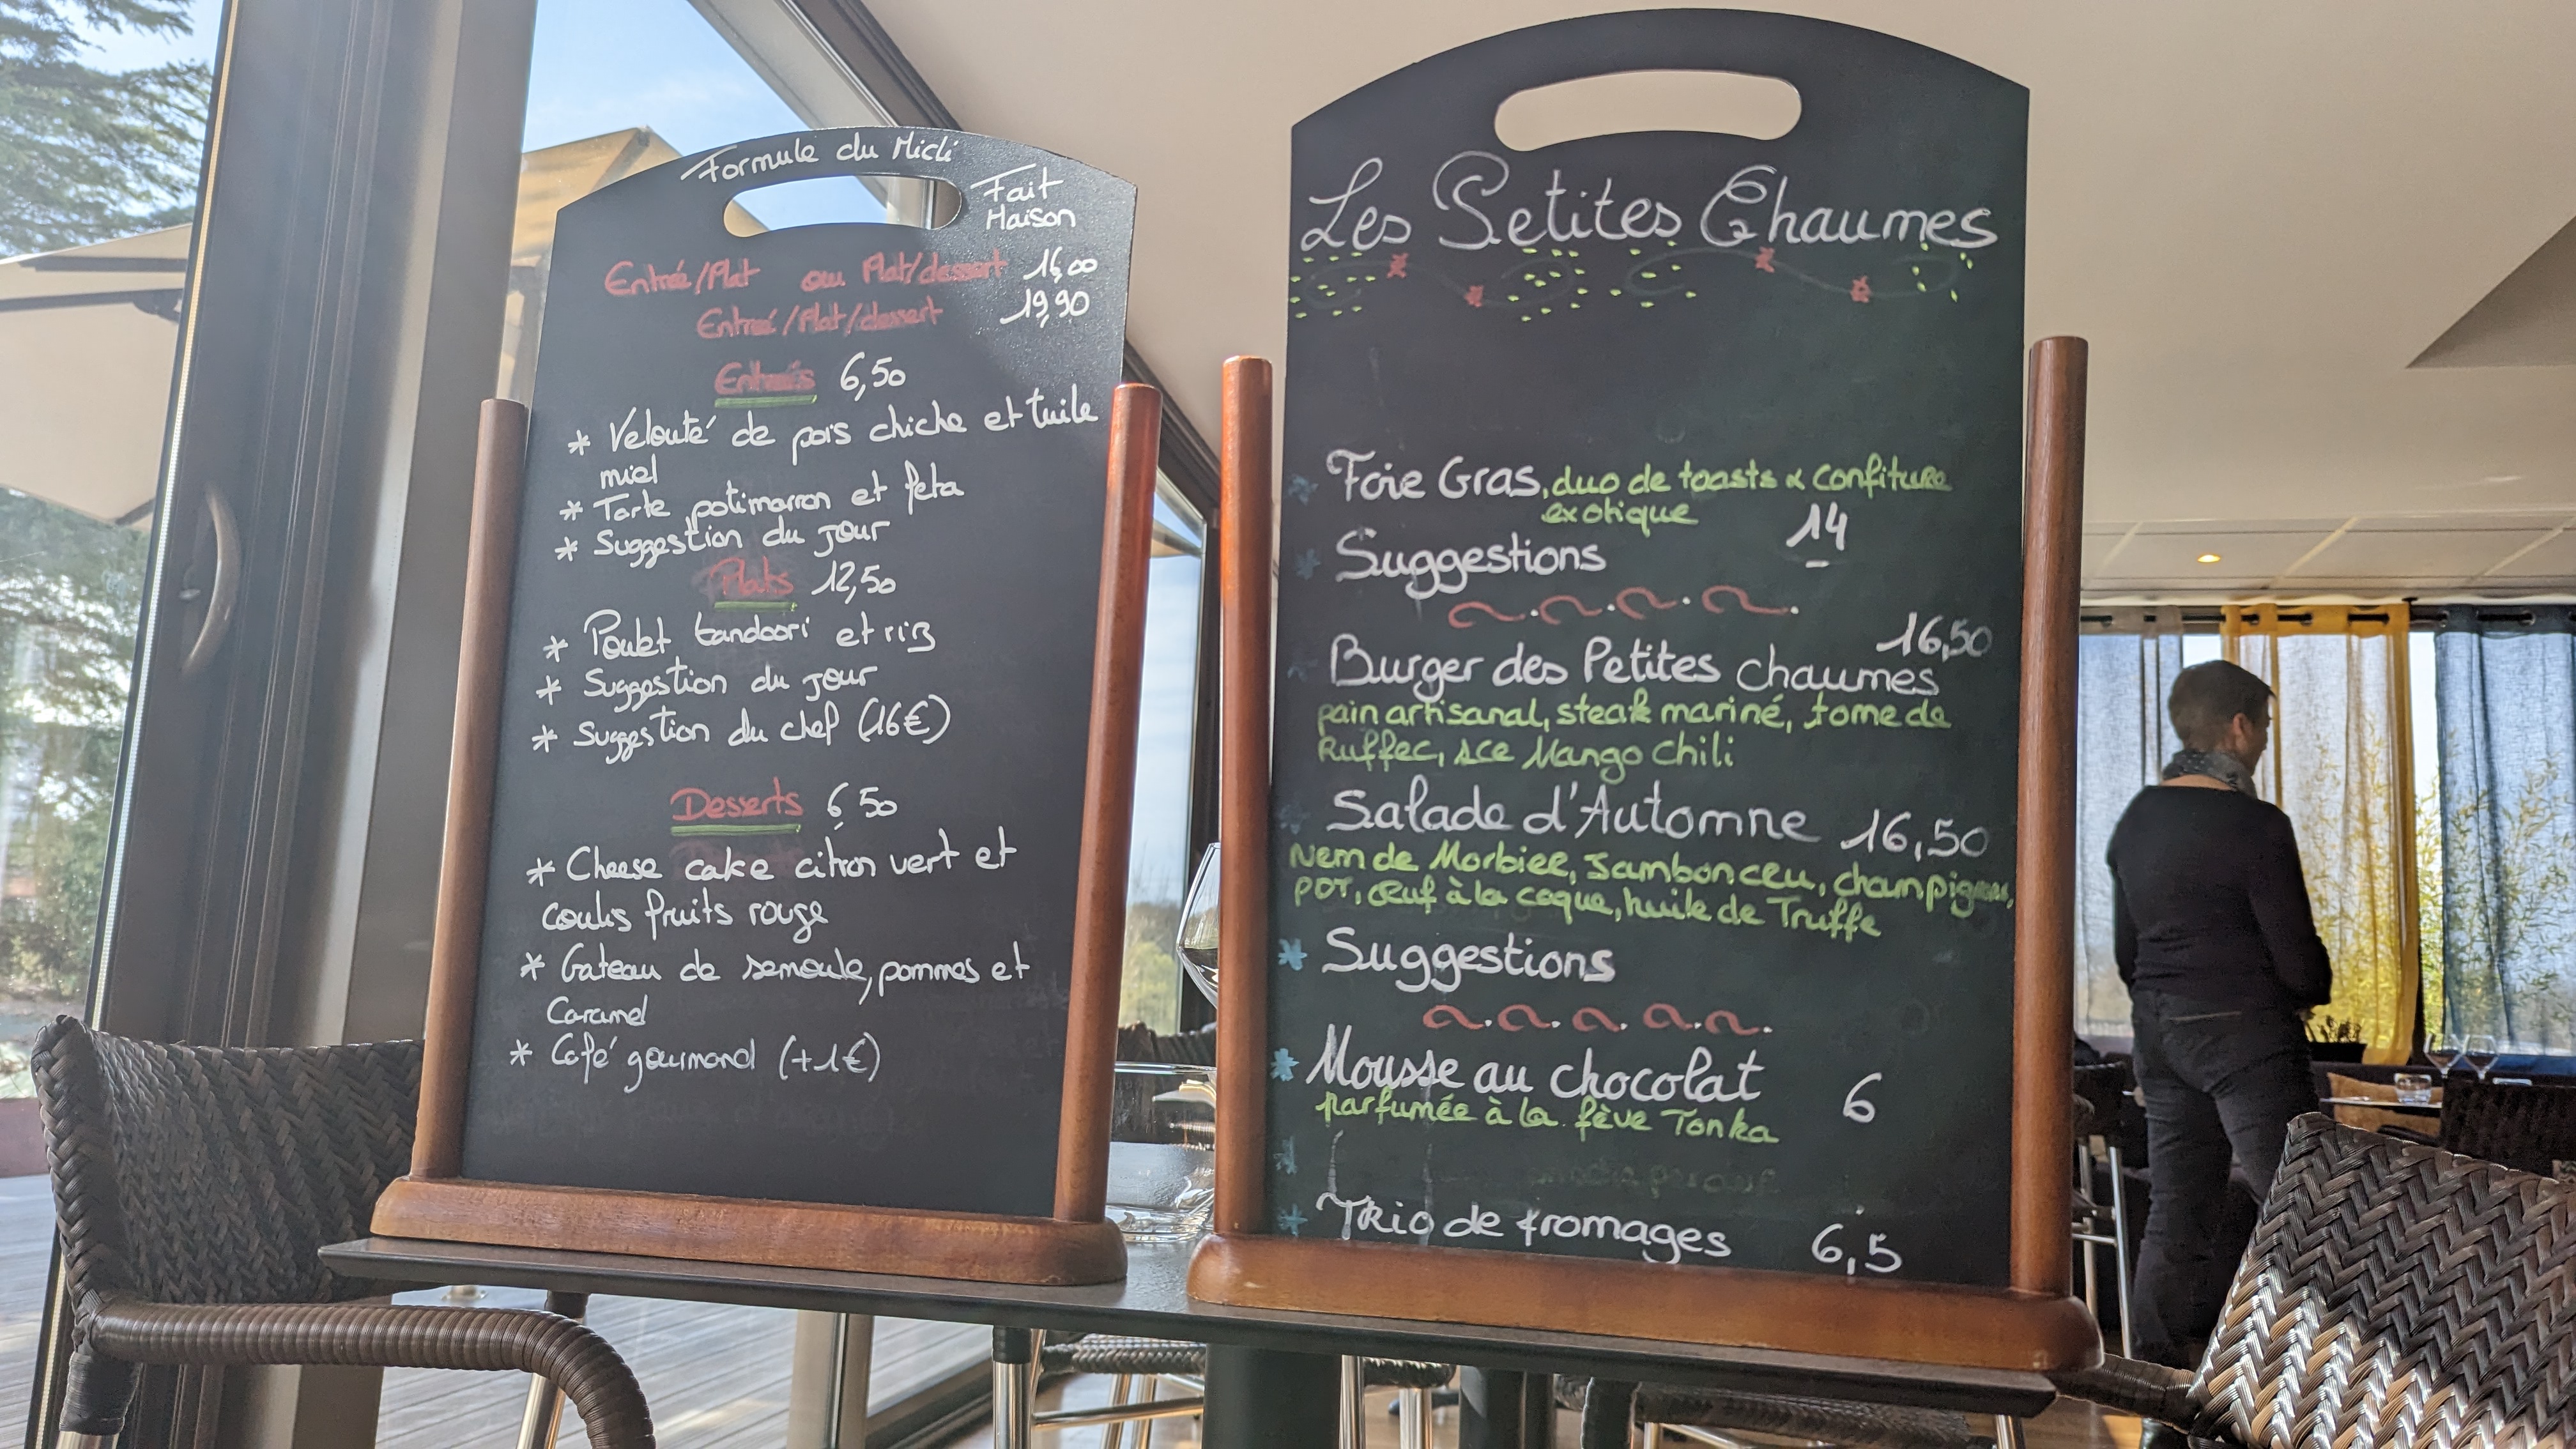 Formule du Midi
Fait
Maison
Entrée/Plat ou Plat/dessert 16,00
Entrée/Plat/dessert 19,90
Entrés 6,50
* Velouté de pois chiche et tuile
miel
* Tarte potimarron et feta
* Suggestion du jour
Plats 12,50
* Poulet tandoori et riz
* Suggestion du jour
* Suggestion du chef (16€)
Desserts 6,50
* Cheese cake citron vert et
coulis fruits rouge
* Gateau de semoule, pommes et
Caramel
* Café gourmand (+1€)
Les Petites Chaumes
* Foie Gras, duo de toasts & confiture
exotique 14
* Suggestions
16,50
Burger des Petites chaumes
pain artisanal, steak mariné, tome de
Ruffec, sce Mango chili
Salade d'Automne 16,50
Nem de Morbier, Jambon cru, champignons,
PDT, œuf à la coque, huile de Truffe
* Suggestions
* Mousse au chocolat 6
parfumée à la fève Tonka
*
* Trio de fromages 6,5